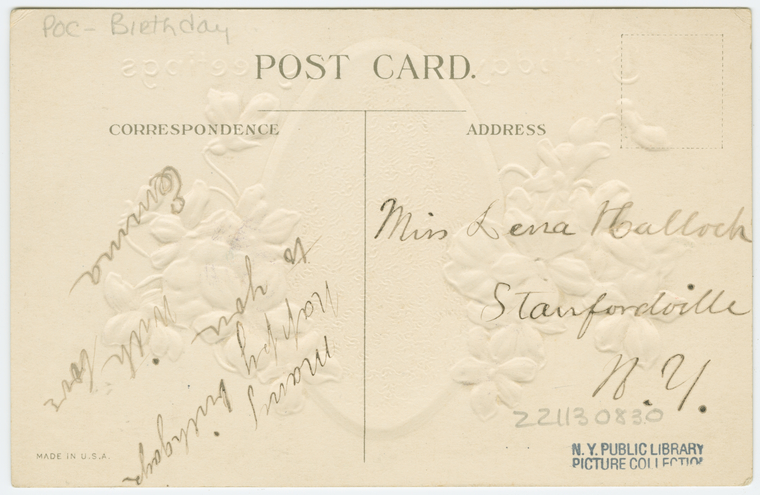 POC - Birthday
POST CARD.
CORRESPONDENCE
ADDRESS
many
happy birthdays
to you
with love
Emma
Miss Lena Hallock
Stanfordville
N.Y.
221130830
N.Y. PUBLIC LIBRARY
PICTURE COLLECTION
MADE IN U.S.A.